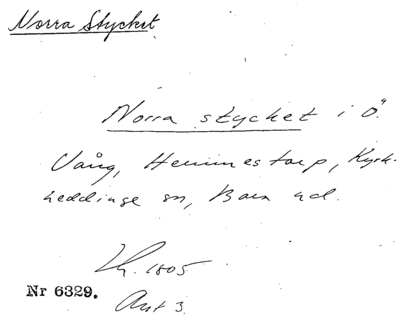 Norra Stycket
Norra stycket i Ö.
Vång, Hemmestorp, Kyrk-
heddinge sn, Bara hd.
Lm. 1805
Nr 6329.
Akt 3.